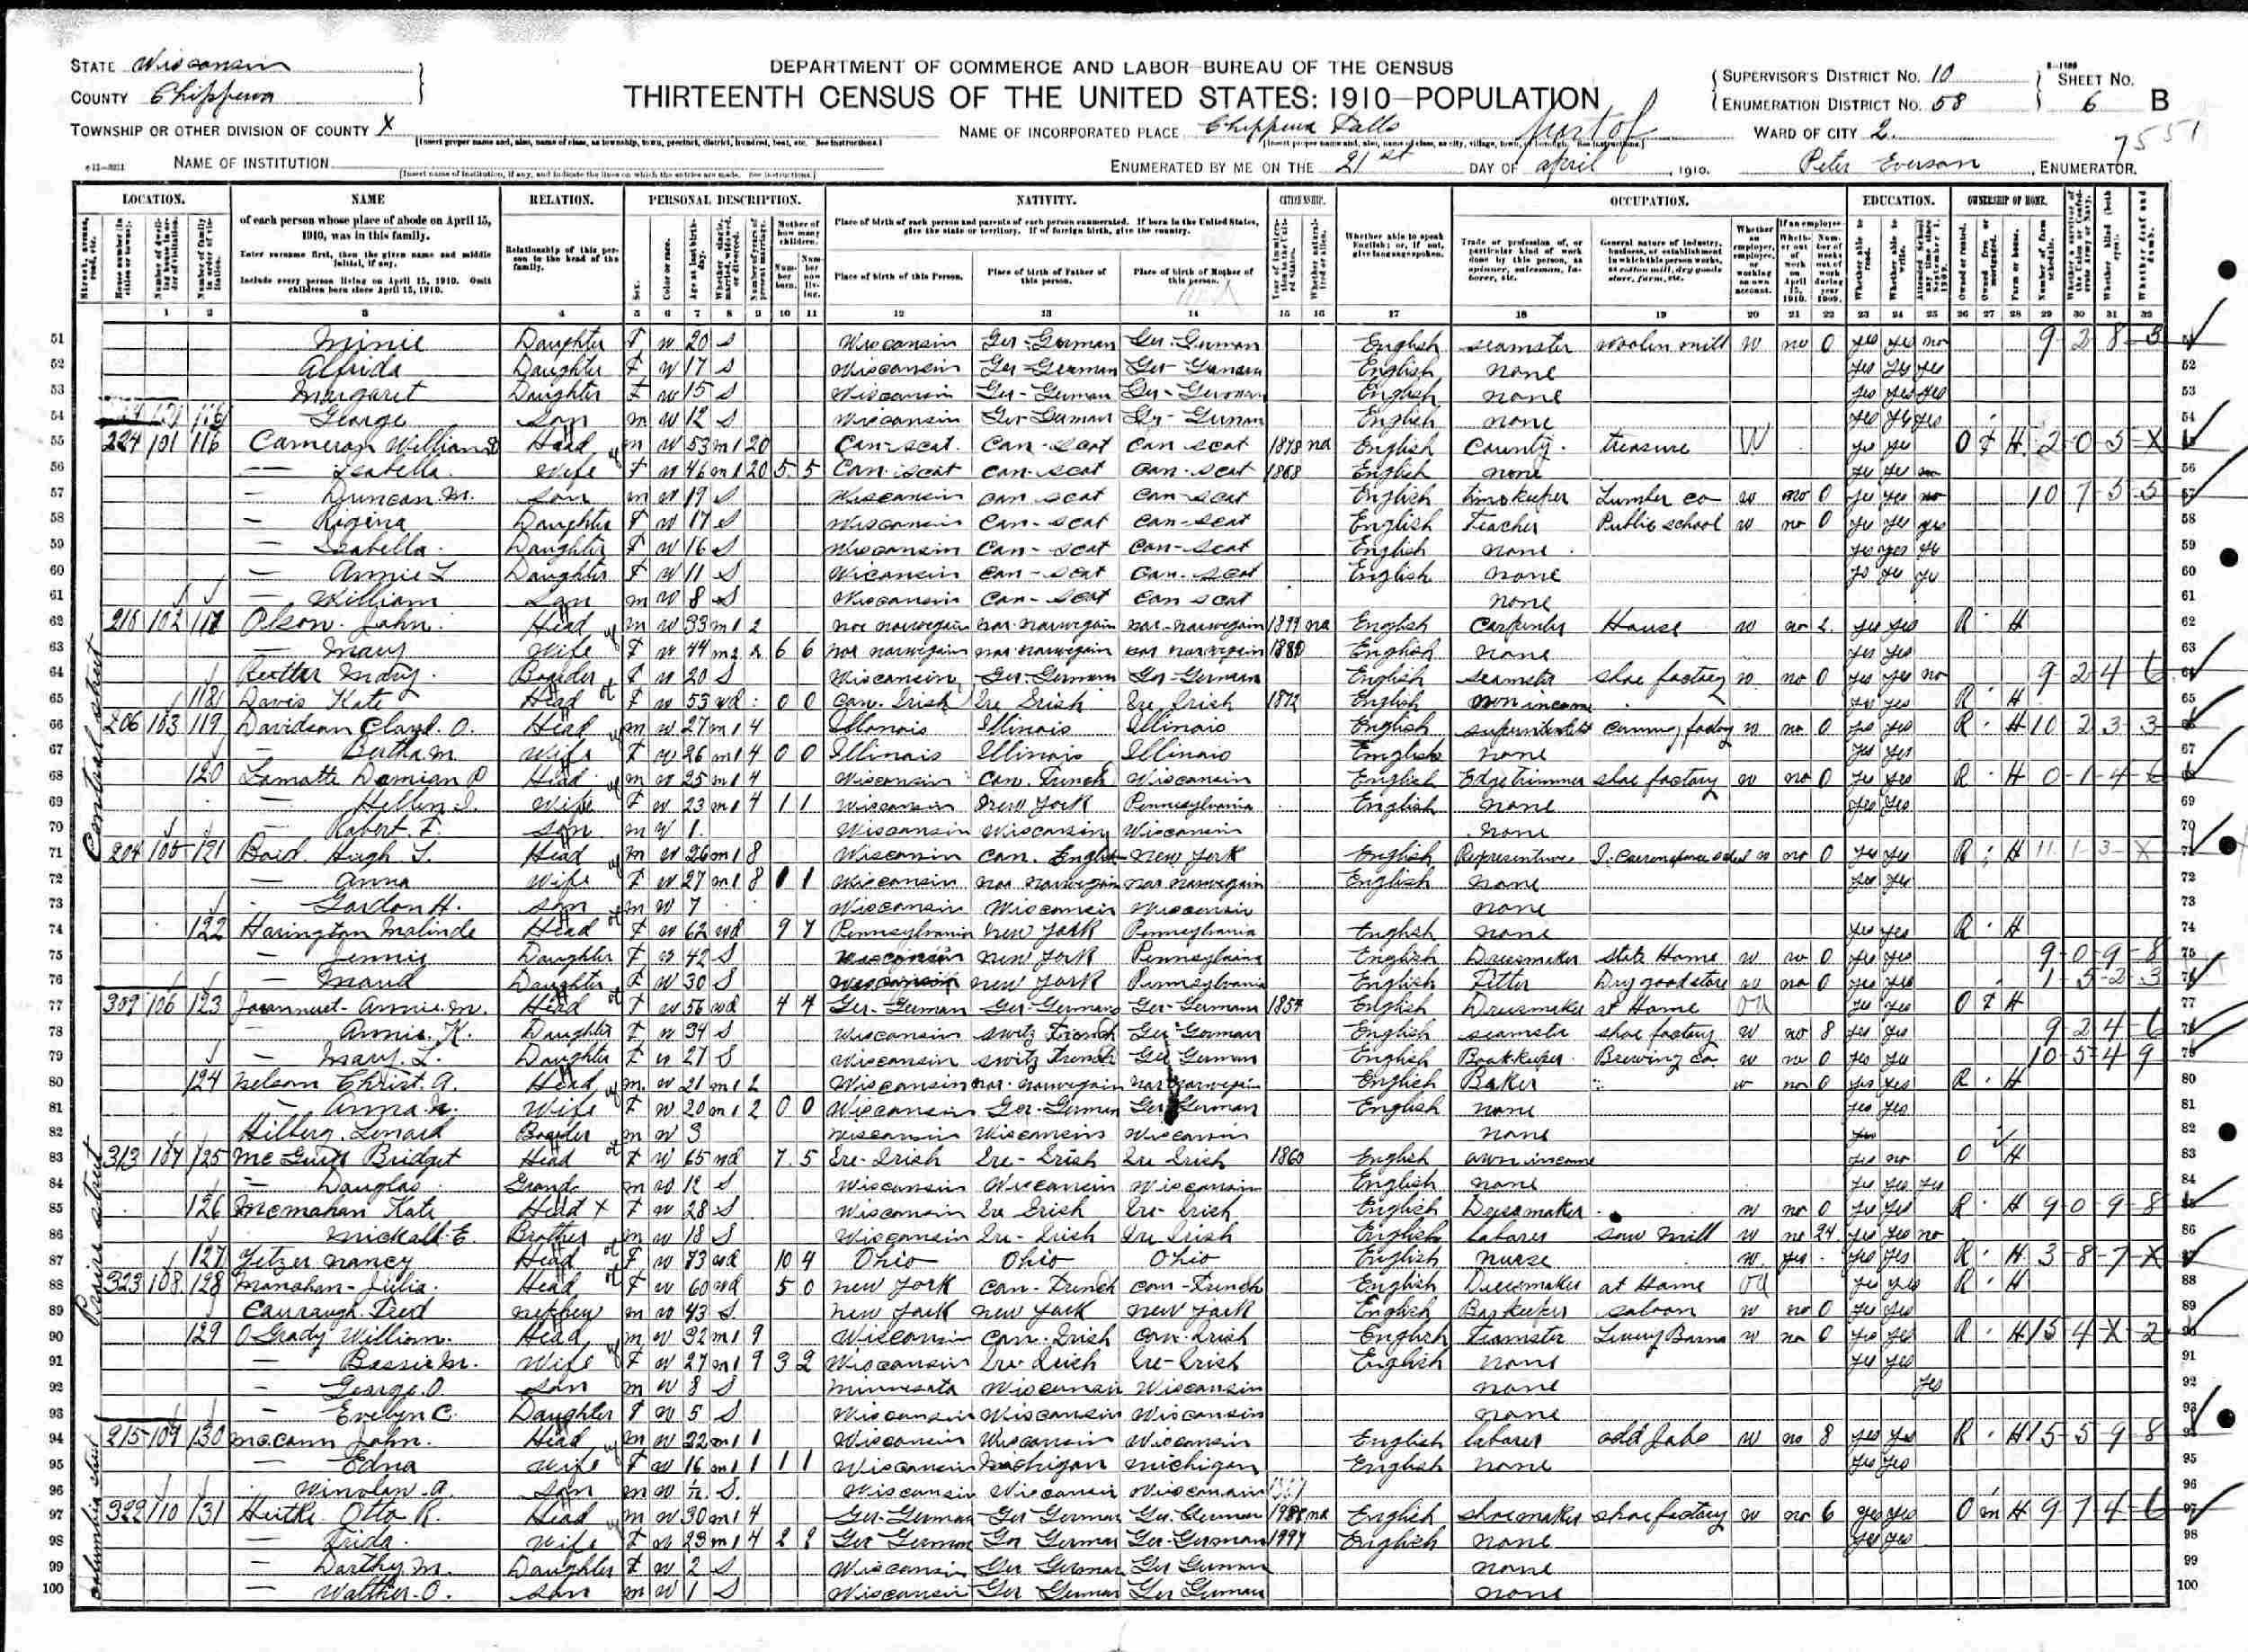 DEPARTMENT OF COMMERCE AND LABOR—BUREAU OF THE CENSUS
THIRTEENTH CENSUS OF THE UNITED STATES: 1910—POPULATION
STATE Wisconsin
COUNTY Chippewa
TOWNSHIP OR OTHER DIVISION OF COUNTY X
NAME OF INSTITUTION
NAME OF INCORPORATED PLACE Chippewa Falls part of
SUPERVISOR'S DISTRICT No. 10
ENUMERATION DISTRICT No. 58
SHEET No. 6 B
WARD OF CITY 2
7551
ENUMERATED BY ME ON THE 21st DAY OF april, 1910. Peter Everson, ENUMERATOR.
LOCATION. NAME RELATION. PERSONAL DESCRIPTION. NATIVITY. CITIZENSHIP. OCCUPATION. EDUCATION. OWNERSHIP OF HOME.
of each person whose place of abode on April 15, 1910, was in this family.
Enter surname first, then the given name and middle initial, if any.
Include every person living on April 15, 1910. Omit children born since April 15, 1910.
Relationship of this person to the head of the family.
Place of birth of each person and parents of each person enumerated. If born in the United States, give the state or territory. If of foreign birth, give the country.
Place of birth of this Person. Place of birth of Father of this person. Place of birth of Mother of this person.
Whether able to speak English; or, if not, give language spoken.
1 2 3 4 5 6 7 8 9 10 11 12 13 14 15 16 17 18 19 20 21 22 23 24 25 26 27 28 29 30 31 32
51 Minie Daughter F W 20 S Wisconsin Ger-German Ger-German English seamster woolen mill W no 0 yes yes no 9 2 8 3
52 Alfrida Daughter F W 17 S Wisconsin Ger-German Ger-German English none yes yes yes
53 Margaret Daughter F W 15 S Wisconsin Ger-German Ger-German English none yes yes yes
54 George Son m W 12 S Wisconsin Ger-German Ger-German English none yes yes yes
55 224 101 116 Cameron William Head m W 53 m1 20 Can-scot Can-scot Can scot 1878 na English County treasure W yes yes O F H 2 0 5 X
56 Isabella Wife F W 46 m1 20 5 5 Can-scot Can-scot Can-scot 1868 English none yes yes no
57 Duncan M. Son m W 19 S Wisconsin Can scot Can-scot English timekeeper Lumber co W no 0 yes yes no 10 7 5 5
58 Regina Daughter F W 17 S Wisconsin Can-scot Can-scot English Teacher Public school W no 0 yes yes yes
59 Isabella Daughter F W 16 S Wisconsin Can-scot Can-scot English none yes yes yes
60 Annie L Daughter F W 11 S Wisconsin Can-scot Can-scot English none yes yes yes
61 William Son m W 8 S Wisconsin Can-scot Can scot none
62 218 102 117 Olson John Head m W 33 m1 2 nor norwegain nor-norwegain nor-norwegain 1899 na English Carpenter House W no 2 yes yes R H
63 Mary Wife F W 44 m2 2 6 6 nor norwegain nor norwegain nor norwegain 1880 English none yes yes
64 Reutter Mary Boarder F W 20 S Wisconsin Ger-German Ger-German English seamster shoe factory W no 0 yes yes no 9 2 4 6
65 118 Davis Kate Head F W 53 wd 0 0 Can-Irish Ire Irish Ire Irish 1872 English own income yes yes R H
66 206 103 119 Davidson Clayd. O. Head m W 27 m1 4 Illonais Illinois Illinois English superintendent canning factory W no 0 yes yes R H 10 2 3 3
67 Bertha M. Wife F W 26 m1 4 0 0 Illinois Illinois Illinois English none yes yes
68 120 Lamatte Damian P Head m W 25 m1 4 Wisconsin Can. French Wisconsin English Edgetrimmer shoe factory W no 0 yes yes R H 0 1 4 6
69 Hellen I. Wife F W 23 m1 4 1 1 Wisconsin new York Pennsylvania English none yes yes
70 Robert F. Son m W 1 Wisconsin Wisconsin Wisconsin none
71 204 105 121 Boid Hugh T. Head m W 26 m1 8 Wisconsin Can. English New York English Representive W no 0 yes yes R H 11 1 3 X
72 Anna Wife F W 27 m1 8 1 1 Wisconsin nor norwegain nor norwegain English none yes yes
73 Gordon H. Son m W 7 Wisconsin Wisconsin Wisconsin none
74 122 Harington Malinde Head F W 62 wd 9 7 Pennsylvania new York Pennsylvania English none yes yes R H
75 Jennie Daughter F W 42 S Wisconsin new York Pennsylvania English Dressmaker W no 0 yes yes 9 0 9 8
76 Maud Daughter F W 30 S Wisconsin new York Pennsylvania English Fitter Dry good store W no 0 yes yes 1 5 2 3
77 309 106 123 Annie M. Head F W 56 wd 4 4 Ger-German Ger-German Ger-German 1854 English Dressmaker at Home OA yes yes O F H
78 Annie K. Daughter F W 34 S Wisconsin Switz French Ger German English seamster shoe factory W no 8 yes yes 9 2 4 6
79 Mary L. Daughter F W 27 S Wisconsin Switz French Ger German English Bookkeeper Brewing Co. W no 0 yes yes 10 5 4 9
80 124 Nelson Christ. A. Head m W 21 m1 2 Wisconsin nor-norwegain nor norwegain English Baker W no 0 yes yes R H
81 Anna Wife F W 20 m1 2 0 0 Wisconsin Ger-German Ger German English none yes yes
82 Hilberg Lenard Boarder m W 3 Wisconsin Wisconsin Wisconsin none
83 313 107 125 Bridget Head F W 65 wd 7 5 Ire-Irish Ire-Irish Ire Irish 1860 English own income yes no O H
84 Douglas Grand m W 12 S Wisconsin Wisconsin Wisconsin English none yes yes yes
85 126 Mcmahan Kate Head X F W 28 S Wisconsin Ire Irish Ire-Irish English Dressmaker W no 0 yes yes R H 9 0 9 8
86 Mickall E. Brother m W 18 S Wisconsin Ire-Irish Ire Irish English laborer saw mill W no 24 yes yes no
87 127 Yetzer Nancy Head F W 73 wd 10 4 Ohio Ohio Ohio English nurse W yes yes yes R H 3 8 7 X
88 323 108 128 Manahan Julia Head F W 60 wd 5 0 New York Can-French Can-French English Dressmaker at Home OA yes yes R H
89 Fred nephew m W 43 S New York New York New York English Barkeeper saloon W no 0 yes yes
90 129 O Grady William Head m W 32 m1 9 Wisconsin Can-Irish Can-Irish English Teamster Livery Barns W no 0 yes yes R H 15 4 X 2
91 Bessie M. Wife F W 27 m1 9 3 2 Wisconsin Ire-Irish Ire-Irish English none yes yes
92 George O. Son m W 8 S Minnesota Wisconsin Wisconsin none yes
93 Evelyn C. Daughter F W 5 S Wisconsin Wisconsin Wisconsin none
94 215 109 130 McCann John Head m W 22 m1 1 Wisconsin Wisconsin Wisconsin English laborer odd Jobs W no 8 yes yes R H 15 5 9 8
95 Edna Wife F W 16 m1 1 1 1 Wisconsin Michigan Michigan English none yes yes
96 A. Son m W S. Wisconsin Wisconsin Wisconsin
97 322 110 131 Otto R. Head m W 30 m1 4 Ger-German Ger German Ger. German na English shoemaker shoe factory W no 6 yes yes O m H 9 7 4 6
98 Frida Wife F W 23 m1 4 2 2 Ger German Ger German Ger-German English none yes yes
99 Dorthy M. Daughter F W 2 S Wisconsin Ger German Ger German none
100 Walther O. Son m W 1 S Wisconsin Ger German Ger German none
Central street
street
Columbia street